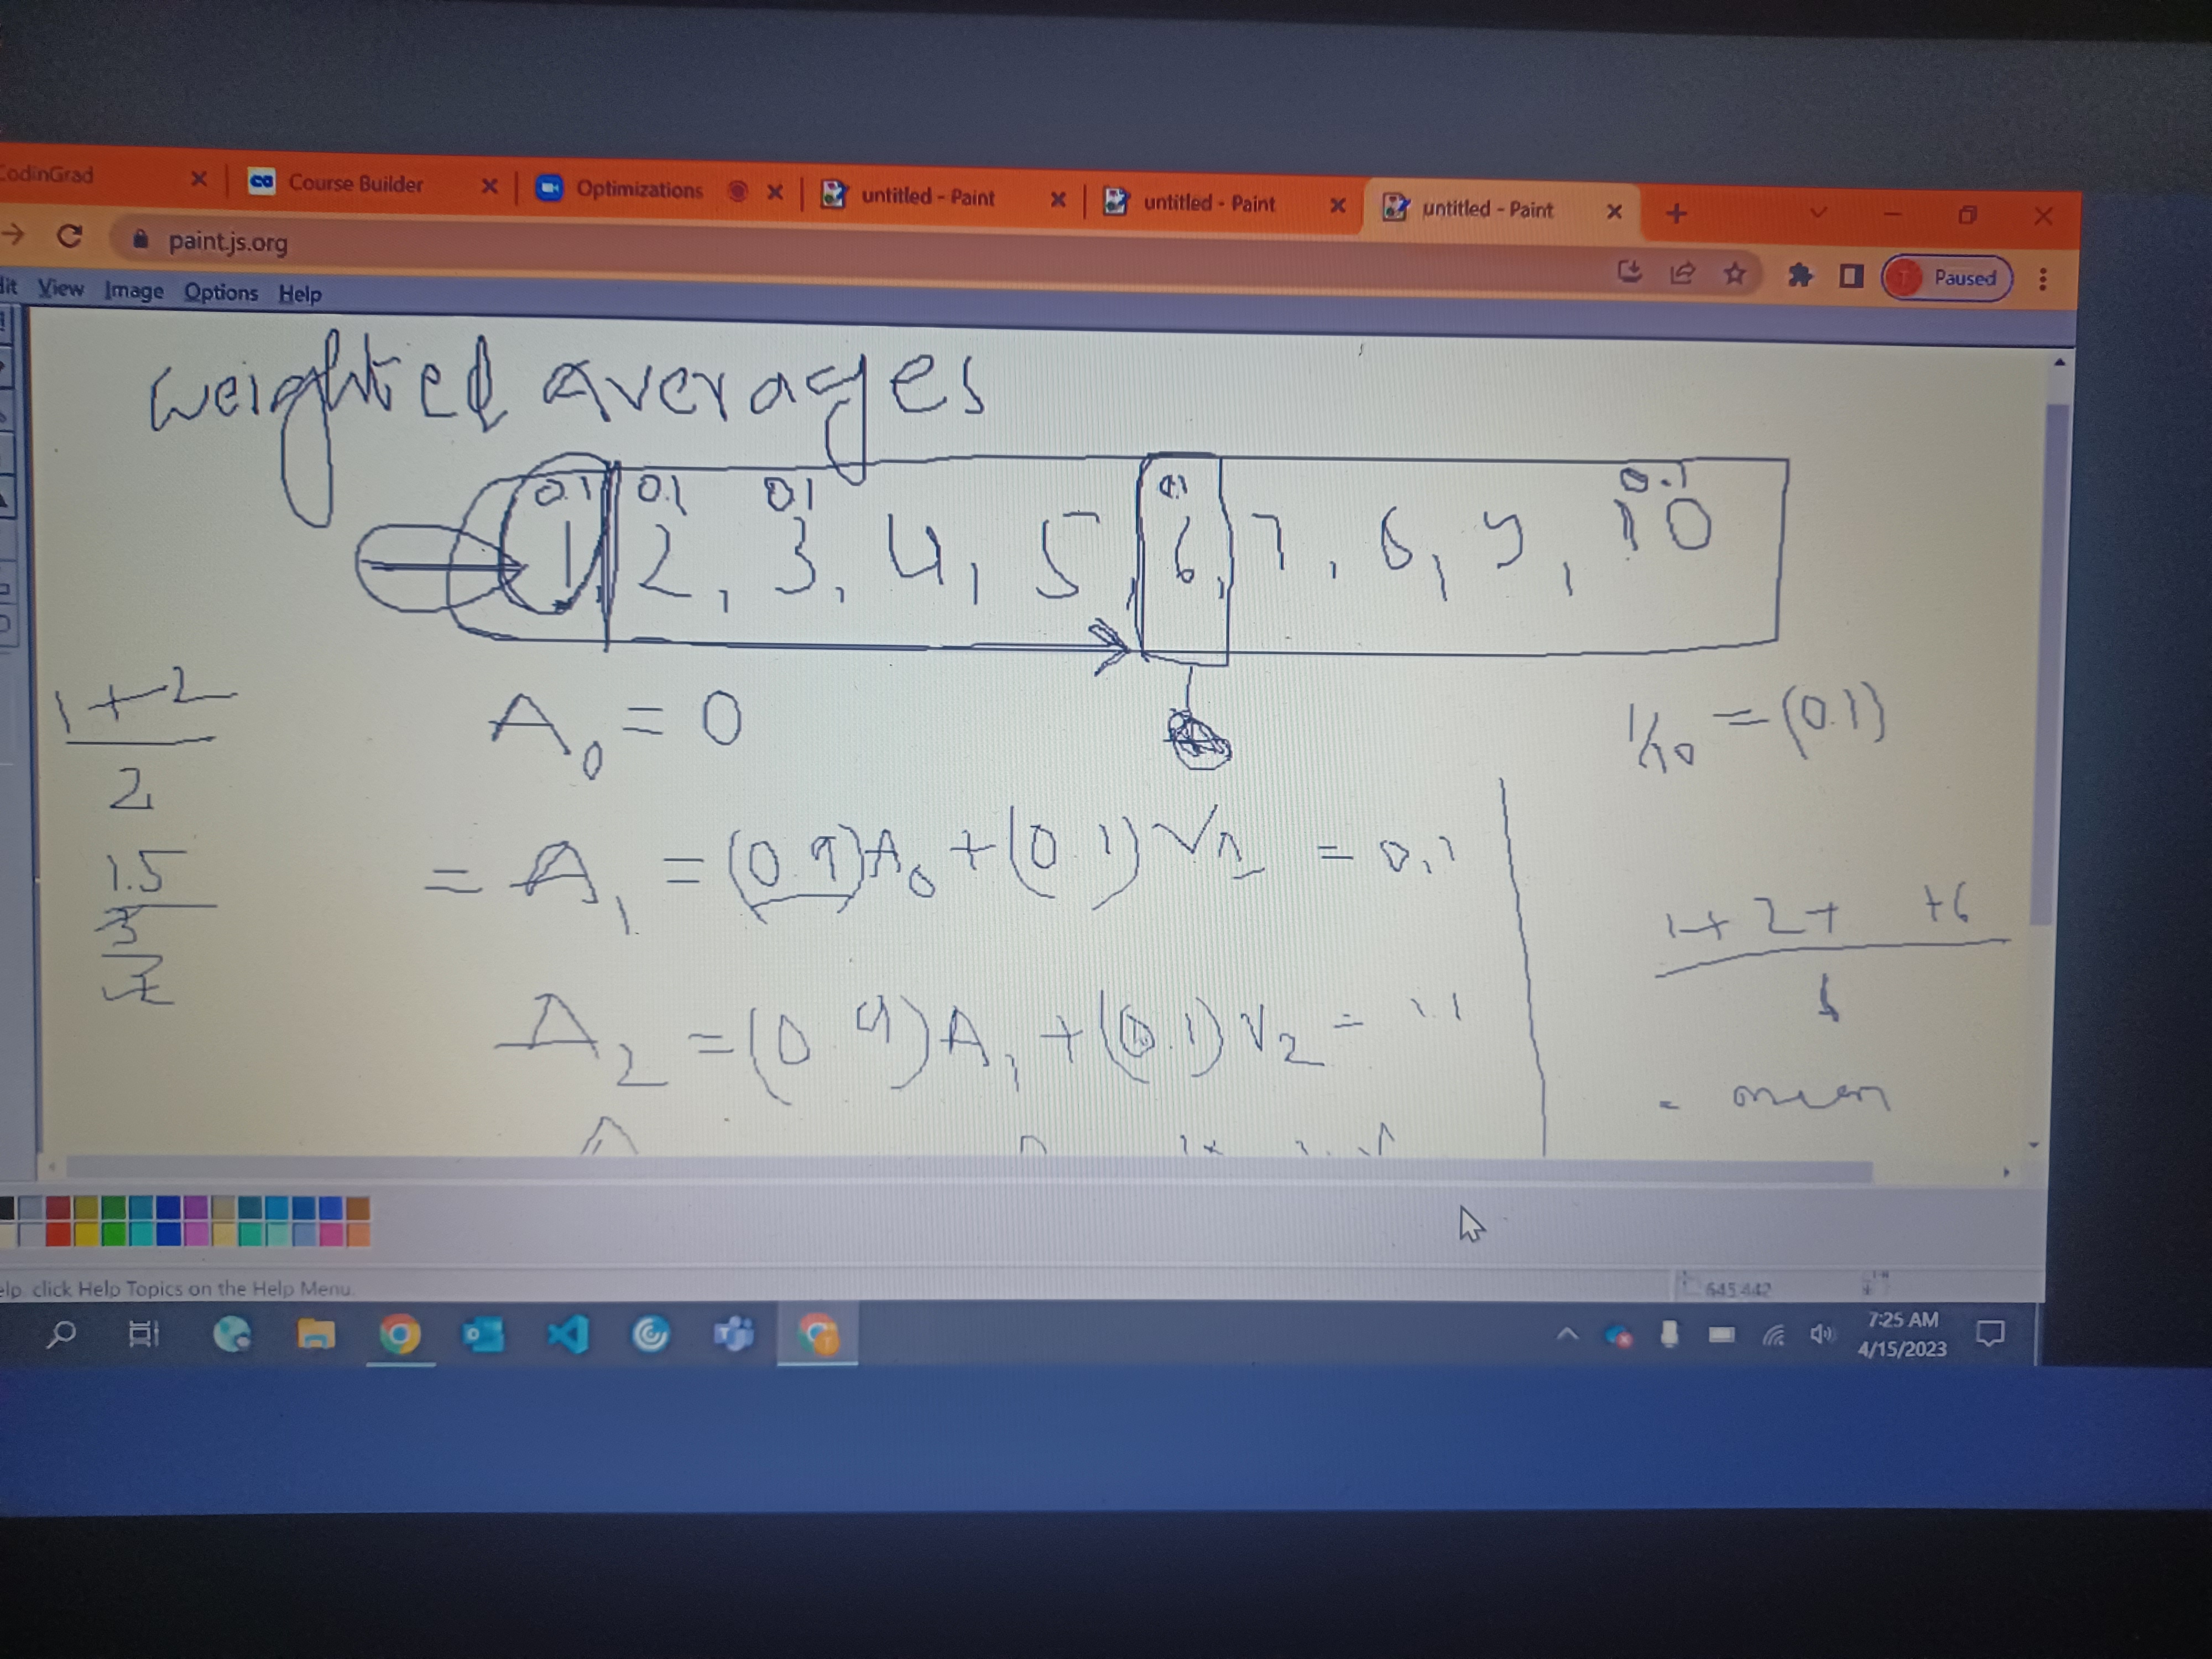 CodinGrad Course Builder Optimizations untitled - Paint untitled - Paint untitled - Paint
paint.js.org Paused
dit View Image Options Help
weighted averages
0.1 0.1 0.1 0.1 0.1
1, 2, 3, 4, 5, 6, 7, 8, 9, 10
1+2
2
1.5
3
A0 = 0
1/10 = (0.1)
= A1 = (0.9)A0 + (0.1)V1 = 0.1
1+2+ +6
6
A2 = (0.9)A1 + (0.1)V2 =
= mean
elp, click Help Topics on the Help Menu.
645,442
7:25 AM
4/15/2023